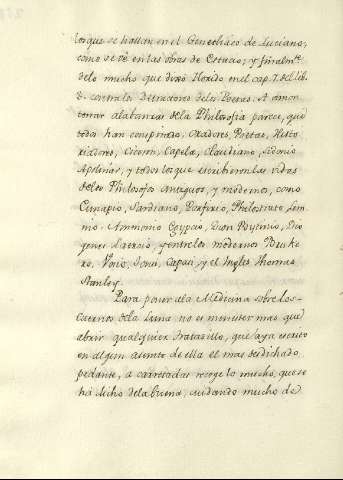 los que se hallan en el Genethliaco de Luciano,
como se vè en las obras de Estacio; y finalm.te
delo mucho que dixo Florido en el cap. 7. del lib.
3. contra los Detractores delos Poetas. A amon-
tonar alabanzas dela Philosofia parece, que
todos han conspirado, Oradores, Poetas, Histo
riadores, Ciceron, Capela, Claudiano, Sidonio
Apolinar, y todos los que escribieron las vidas
delos Philosofos Antiguos, y modernos, como
Eunapio, Porfirio, Philostrato,
nio. Ammonio Egypcio, Dion Prysinio, Dio
genes Laercio, y entre los modernos Bruke
ro, Vosio, Capaci, y el Ingles Thomas
Stanley.
Para poner ala Medicina sobre los
cuernos dela Luna no es menester mas que
abrir qualquier tratadillo, que aya escrito
en algun asunto de ella el mas desdichado
pedante, a carretadas recoge lo mucho, que se
há dicho dela buena, cuidando mucho de